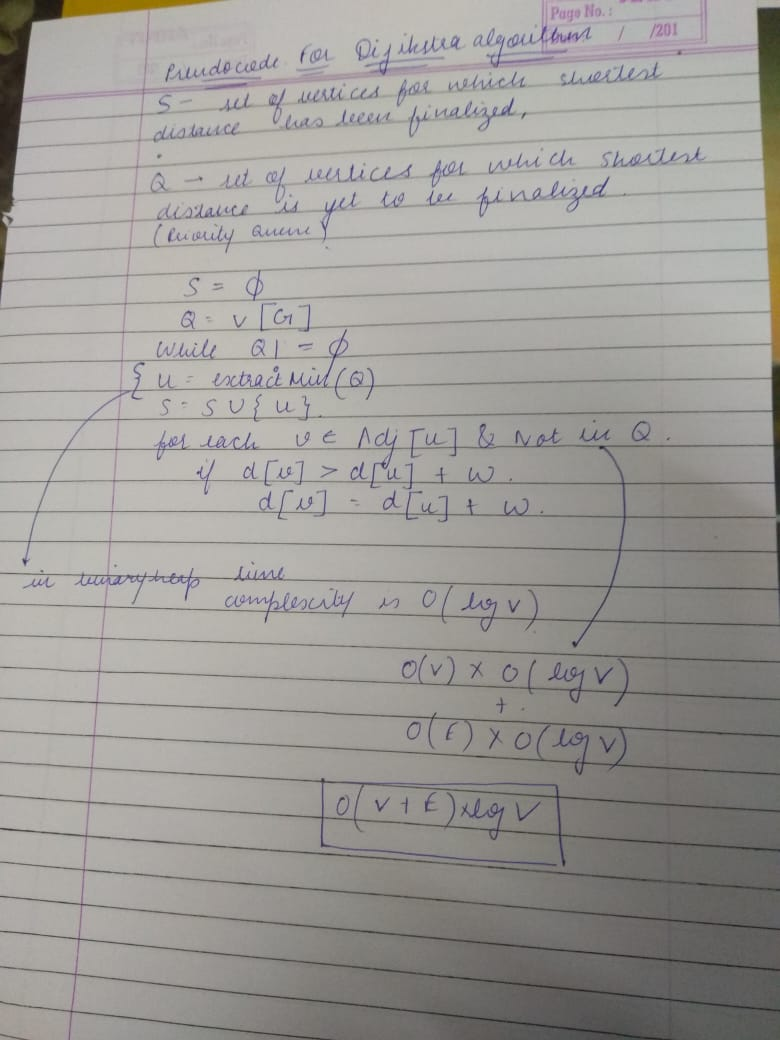 Page No.:
/ /201
Pseudocode For Dijikstra algorithm
S - set of vertices for which shortest
distance has been finalized,
Q → set of vertices for which shortest
distance is yet to be finalized.
(Priority Queue)
S = ϕ
Q = V [G]
While Q != ϕ
{ u = extract Min (Q)
S = S U { u }.
for each v ∈ Adj [u] & Not in Q.
if d[v] > d[u] + w.
d[v] = d[u] + w.
in binary heap time
complexcity is O( log V)
O(V) X O( log V)
+
O(E) X O(log V)
O( V + E) x log V